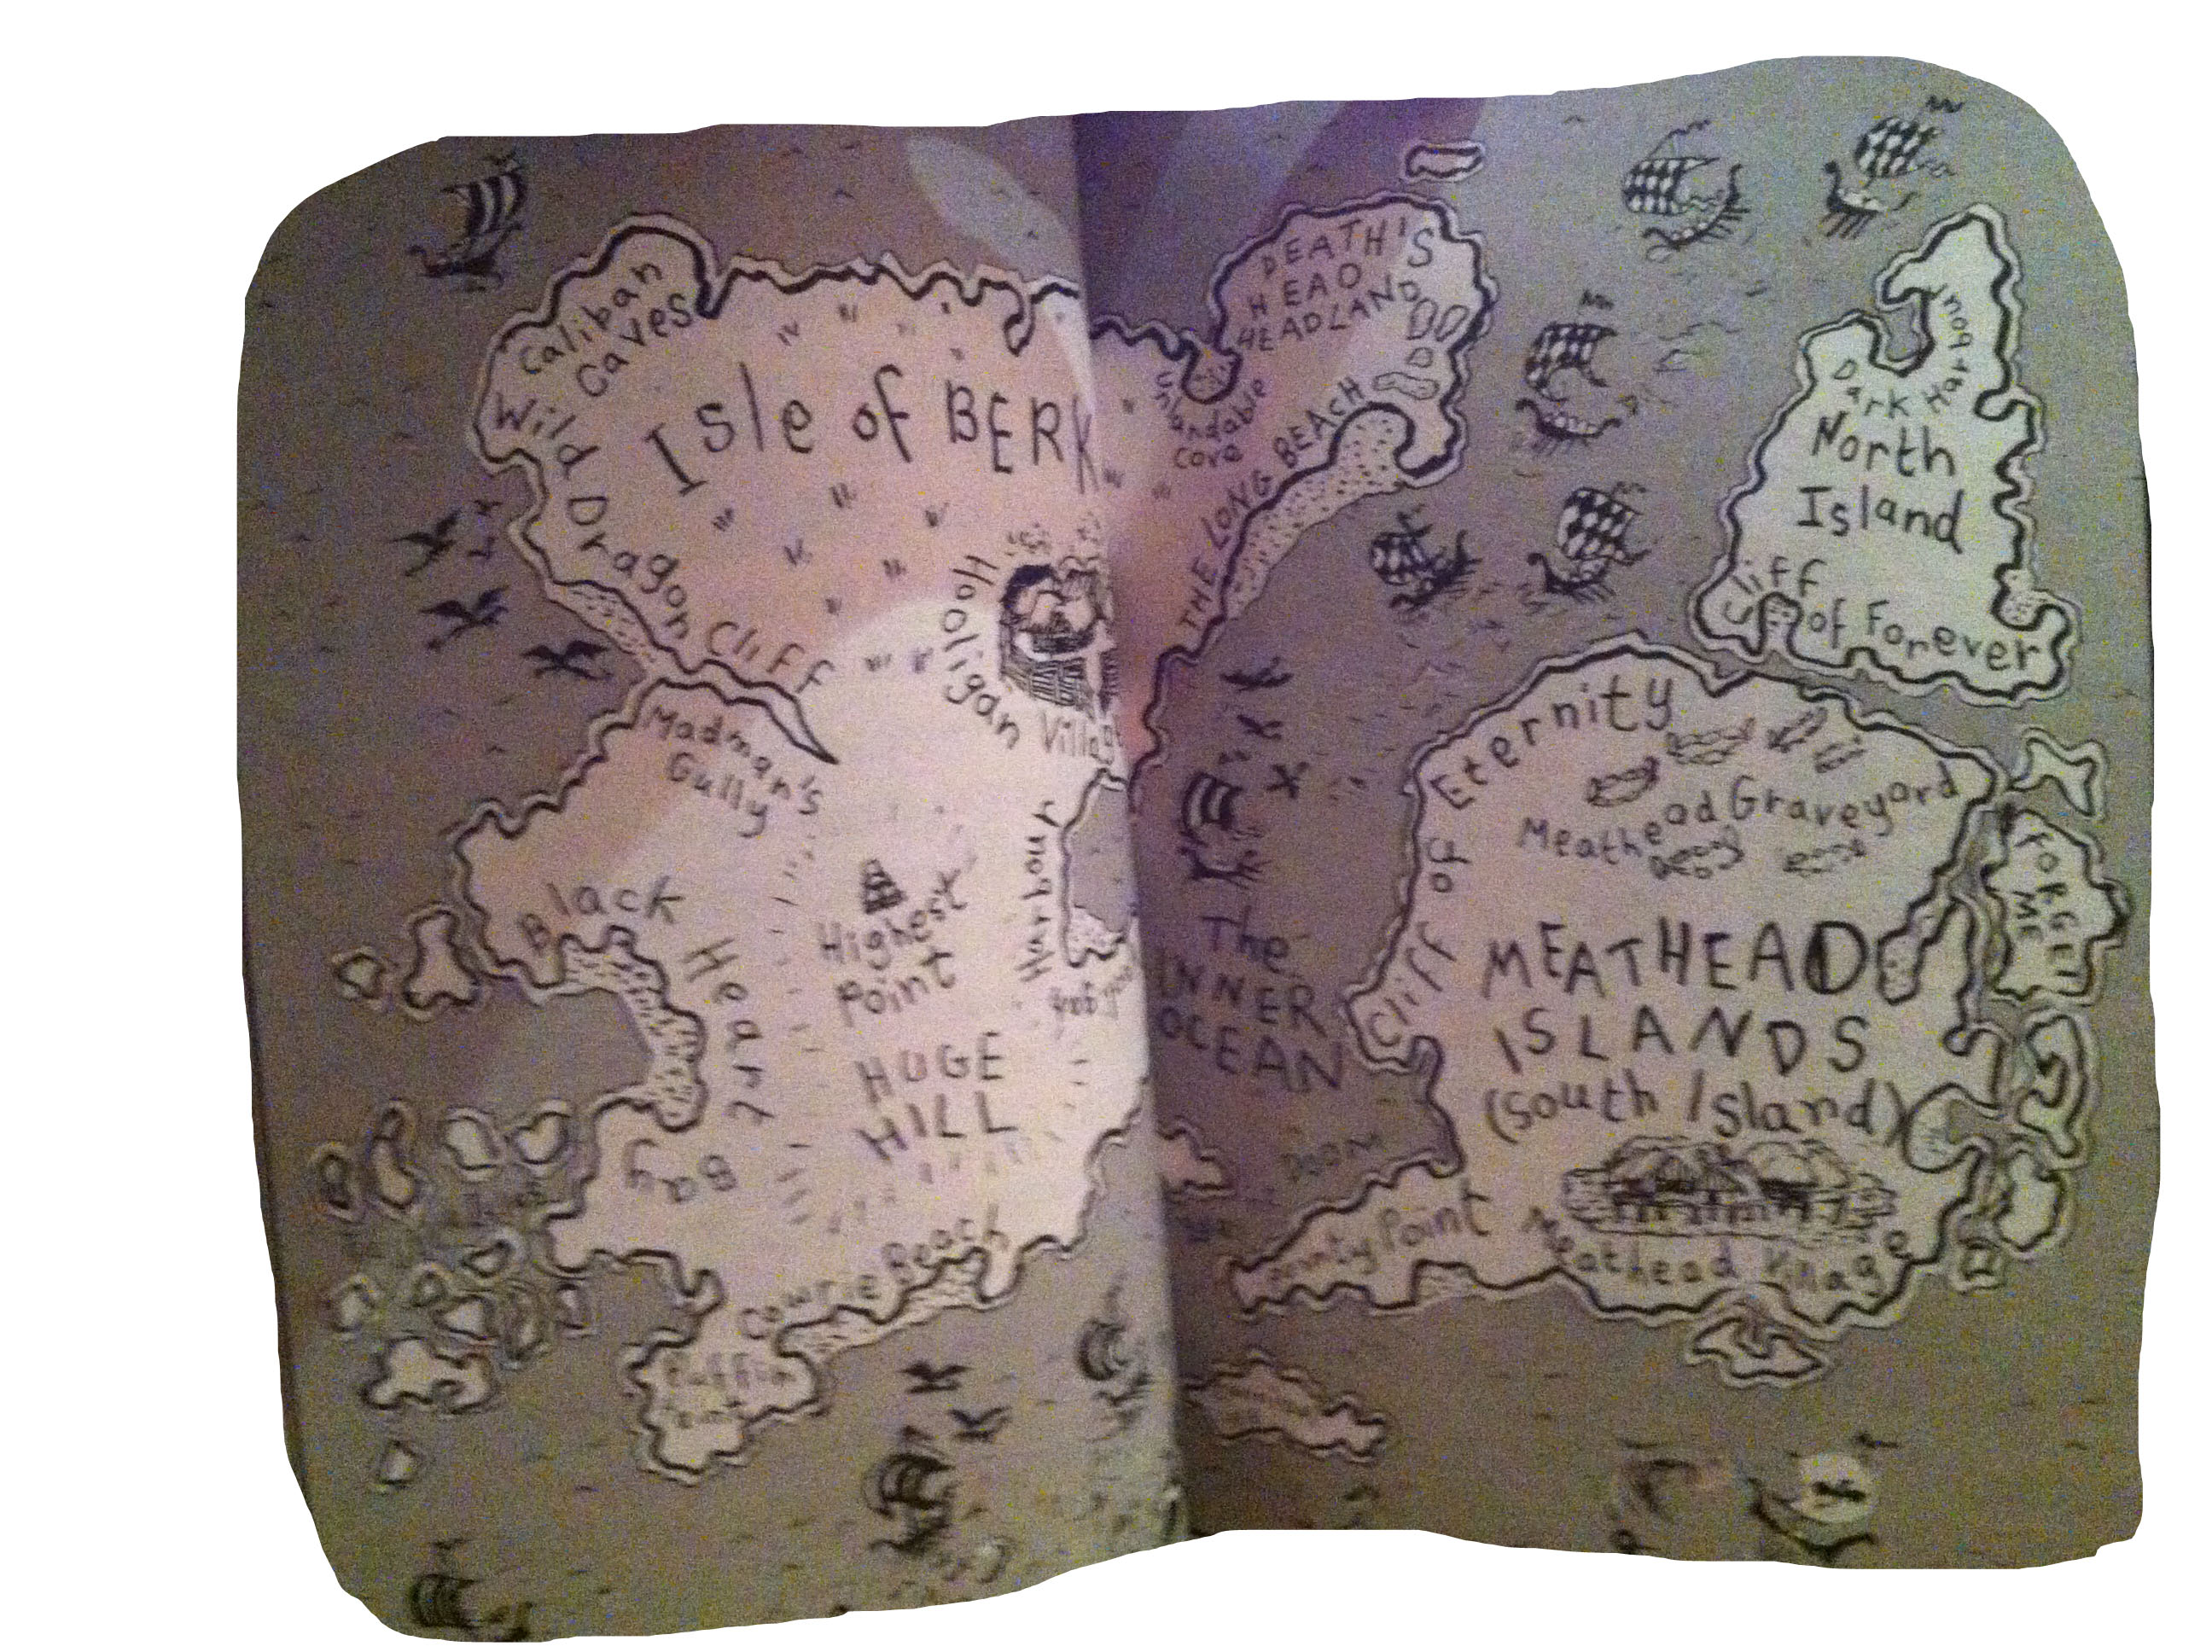 Caliban
Caves
Wild Dragon Cliff
Isle of BERK
Hooligan Village
Madman's
Gully
Black Heart
Bay
Highest
Point
HUGE
HILL
Harbour
Cowrie Beach
Puffin
Point
DEATH'S
HEAD
HEADLAND
Unlandable
Cove
THE LONG BEACH
The
INNER
OCEAN
Dark Harbour
North
Island
Cliff
of Forever
Cliff of Eternity
Meathead Graveyard
MEATHEAD
ISLANDS
(South Island)
FORGET
ME
DOOM
Point
Meathead Village